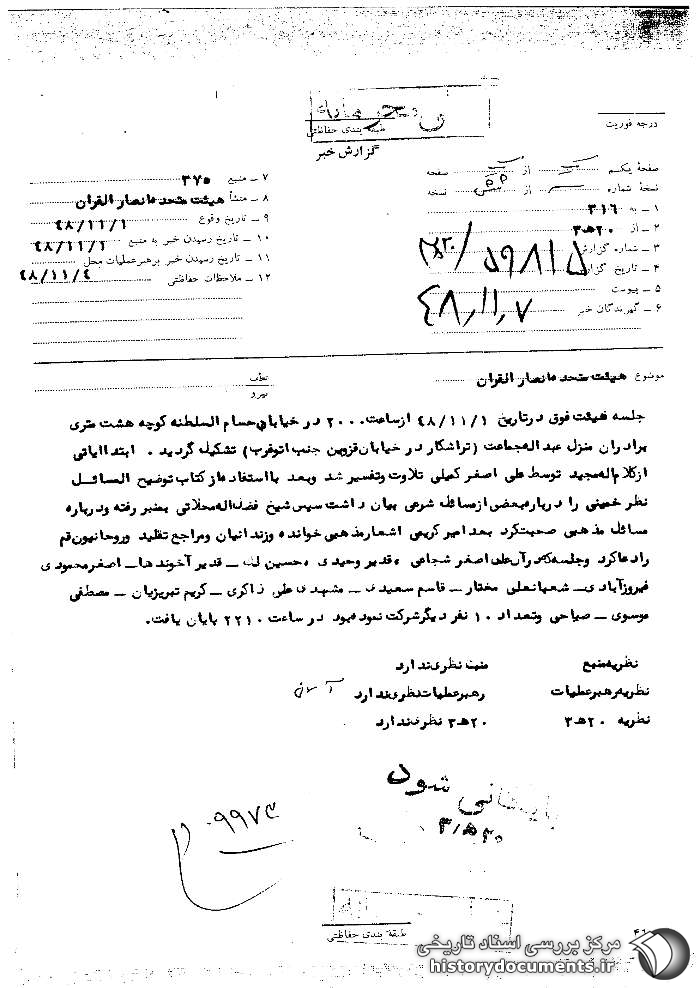 درجه فوریت
طبقه بندی حفاظتی
گزارش خبر
صفحهٔ یکم از صفحه
نسخهٔ شماره از نسخه
۱ - به ۳۱۶
۲ - از ۲۰هـ۳
۳ - شماره گزارش ۵۹۸۱۵ /
۴ - تاریخ گزارش ۴۸,۱۱,۷
۵ - پیوست
۶ - گیرندگان خبر
۷ - منبع ۳۷۵
۸ - منشأ هیئت متحده انصار القران
۹ - تاریخ وقوع ۴۸/۱۱/۱
۱۰ - تاریخ رسیدن خبر به منبع ۴۸/۱۱/۱
۱۱ - تاریخ رسیدن خبر برهبر عملیات محل ۴۸/۱۱/۴
۱۲ - ملاحظات حفاظتی
موضوع هیئت متحده انصار القران
جلسه هیئت فوق درتاریخ ۴۸/۱۱/۱ ازساعت ۲۰۰۰ در خیابان حسام السلطنه کوچه هشت متری
برادران منزل عبدالهجماعت (تراشکار در خیابان قزوین جنب اتوغرب) تشکیل گردید . ابتدا ایاتی
ازکلام الهمجید توسط علی اصغر کمیلی تلاوت وتفسیر شد وبعد با استفاده از کتاب توضیح المسائل
نظر خمینی را درباره بعضی ازمسائل شرعی بیان داشت سپس شیخ فضل اله محلاتی بمنبر رفته ودرباره
مسائل مذهبی صحبت کرد بعد امیر کریمی اشعار مذهبی خوانده وزندانیان ومراجع تقلید وروحانیون قم
را دعا کرد وجلسه که در آن علی اصغر شجاعی ، قدیر وحیدی ، حسین لک - قدیر آخوندها - اصغر محمودی
فیروزآبادی - شعبانعلی مختار - قاسم سعیدی - مشهدی علی ذاکری - کریم تبریزیان - مصطفی
موسوی - صیاحی وتعداد ۱۰ نفر دیگر شرکت نموده بود در ساعت ۲۲۱۰ پایان یافت.
نظریه منبع منبع نظری ندارد
نظریه رهبر عملیات رهبر عملیات نظری ندارد
نظریه ۲۰هـ۳ ۲۰هـ۳ نظری ندارد
بایگانی شود
۰۹۹۷۳
طبقه بندی حفاظتی
مرکز بررسی اسناد تاریخی
historydocuments.ir